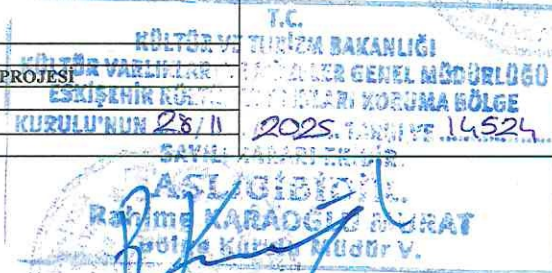 T.C.
KÜLTÜR VE TURİZM BAKANLIĞI
KÜLTÜR VARLIKLARI GENEL MÜDÜRLÜĞÜ
PROJESİ
ESKİŞEHİR KÜLTÜR VARLIKLARI KORUMA BÖLGE
KURULU'NUN 28/11/2025 TARİH VE 14524
SAYILI KARARI EKİDİR
ASLI GİBİDİR.
Rahime KARAOĞLU MURAT
Bölge Kurulu Müdür V.